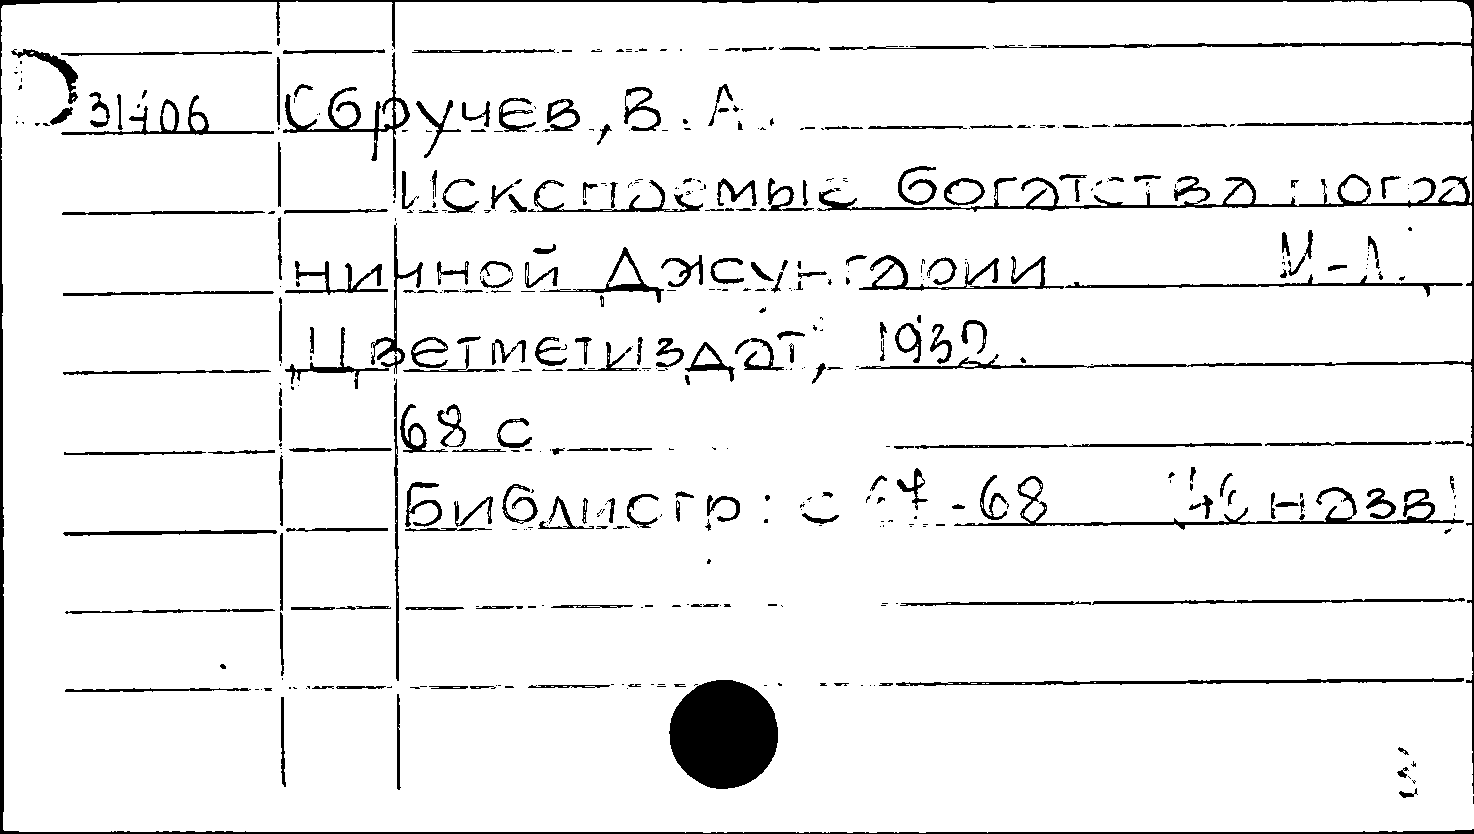 31406 Обручев, В. А.
Ископаемые богатства погра
ничной Джунгарии. М-Л.,
"Цветметиздат", 1932.
68 с.
Библиогр: с 67-68 (46 назв)